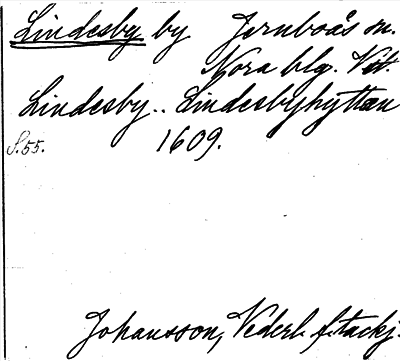 Lindesby by Jernboås sn.
Nora blg. Vstm.
Lindesby.. Lindesbyhyttan
S. 55. 1609.
Johansson, Vederl. f. tackj.